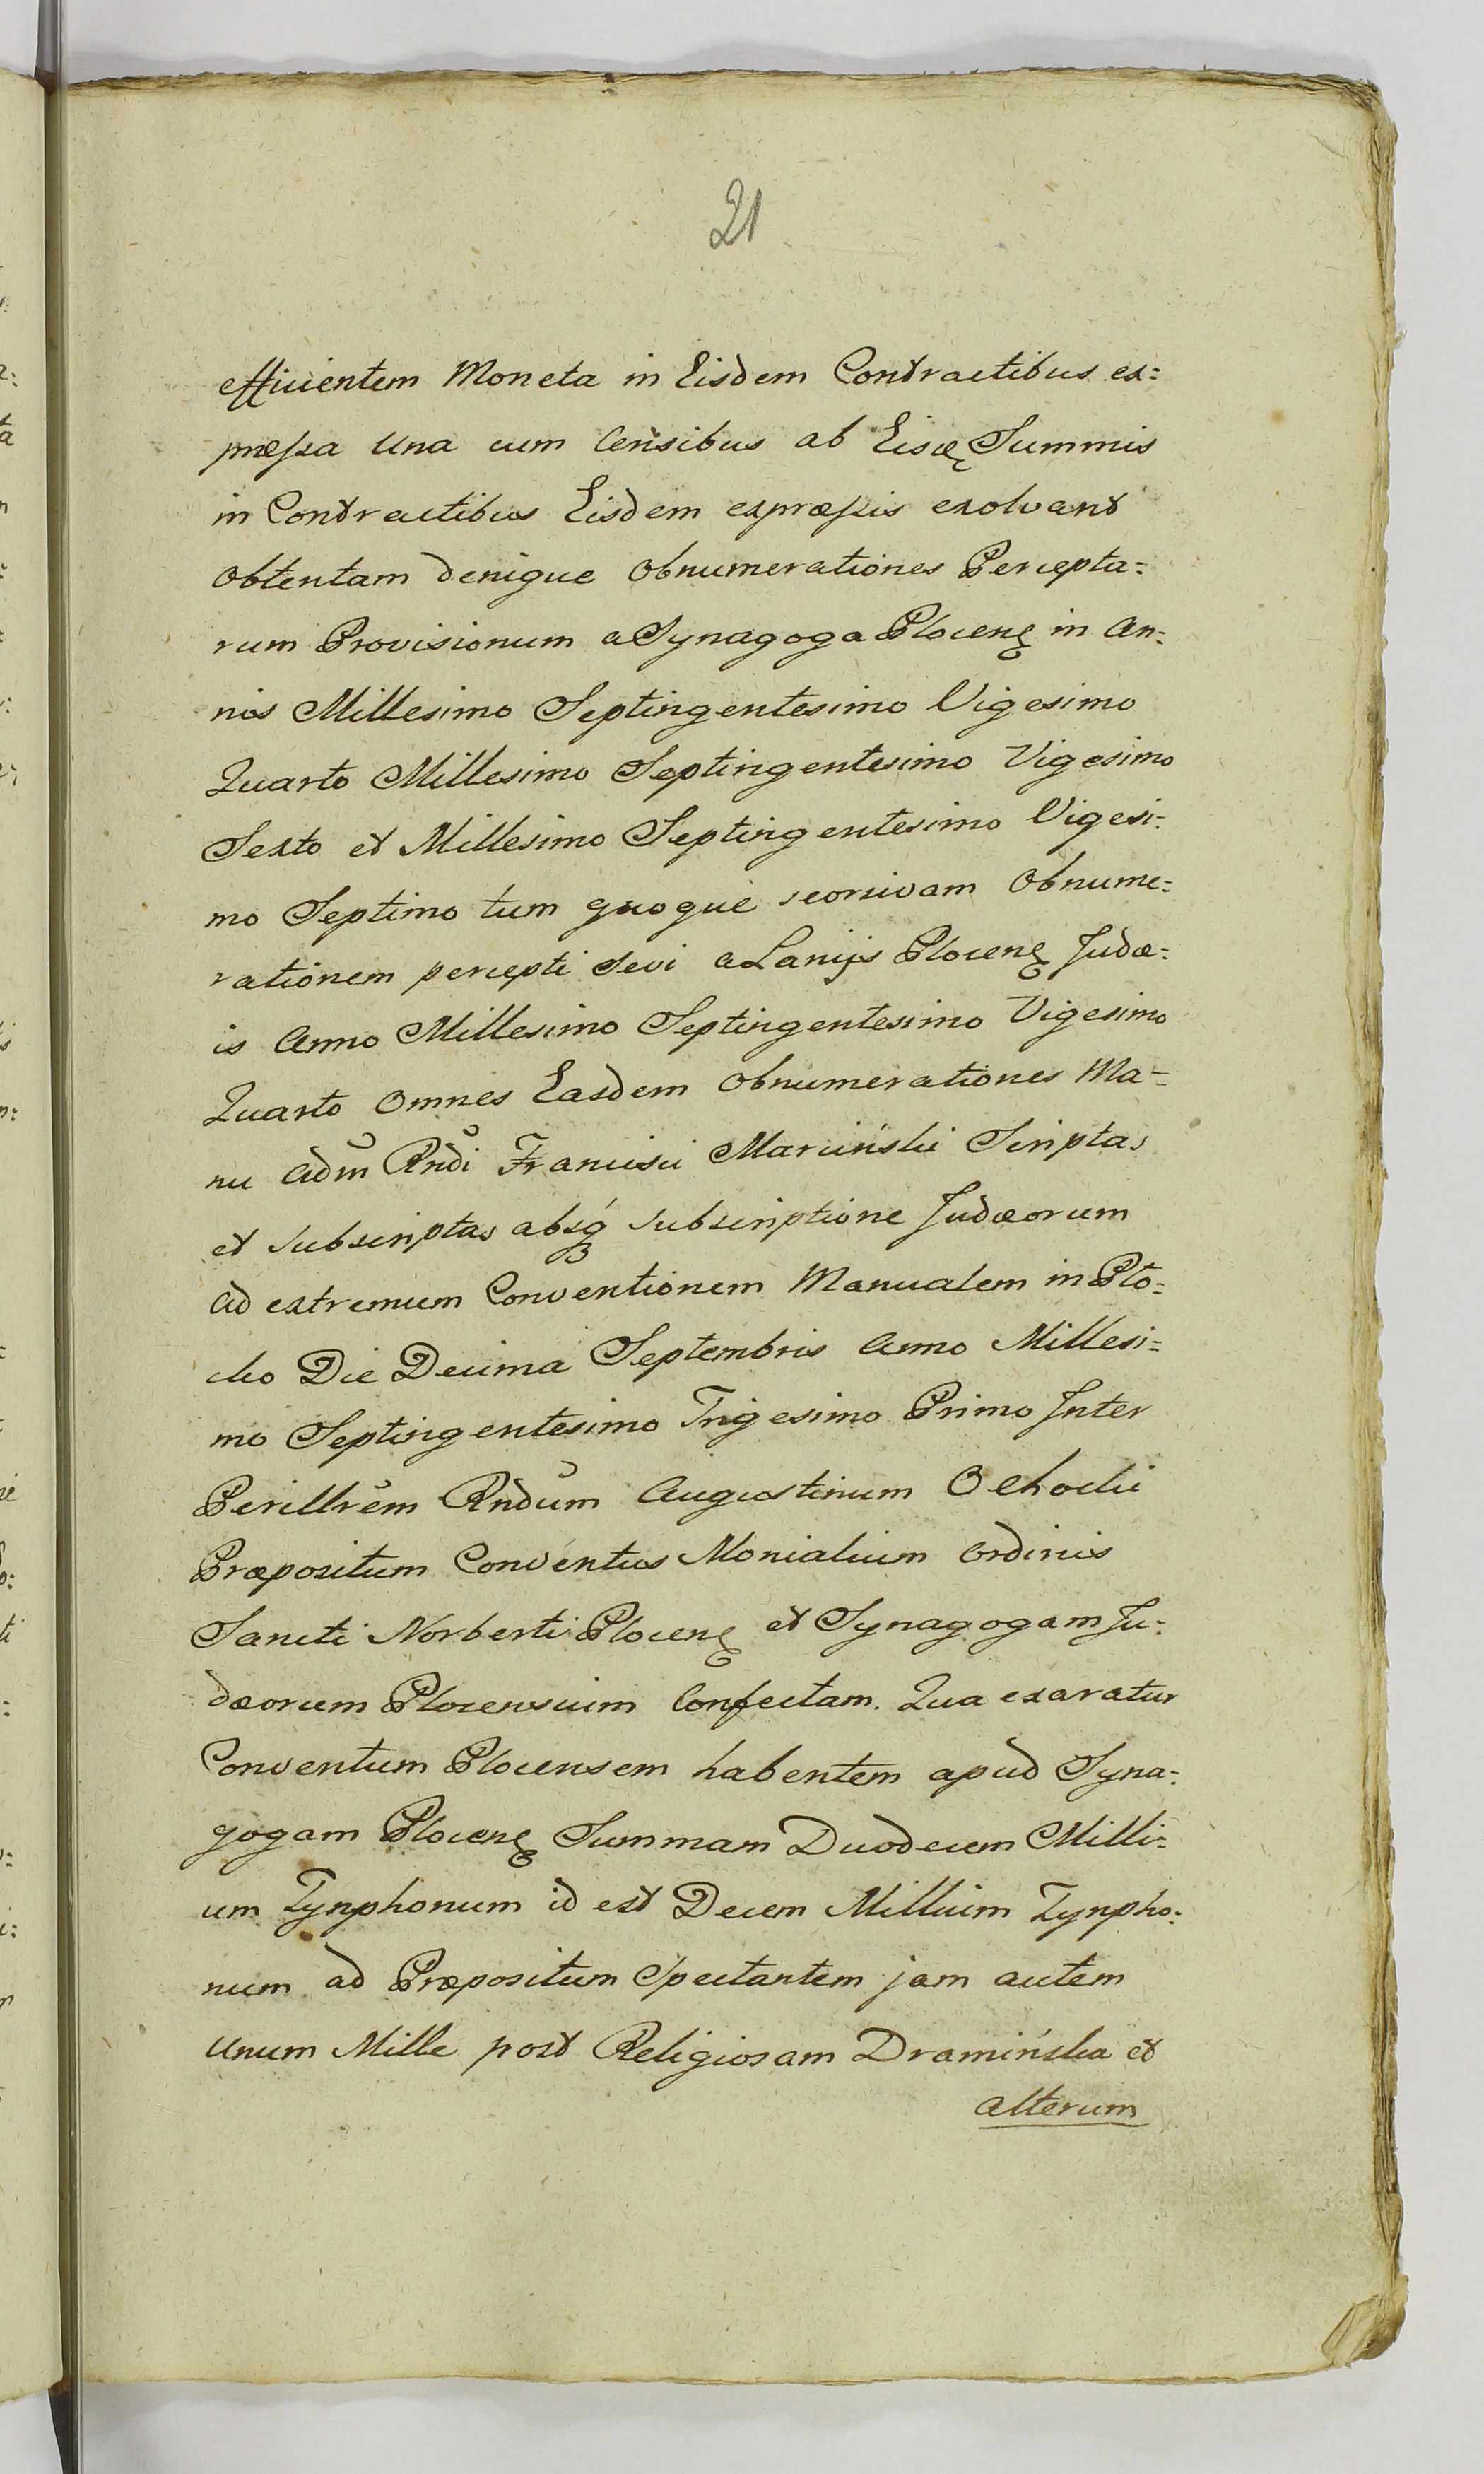 21
efficientem Moneta in Eisdem Contractibus ex=
præssa una cum Censibus ab Eisdę Summis
in Contractibus Eisdem expræssis exolvant
Obtentam denique Obnumerationes Percepta=
rum Provisionum a Synagoga Plocenę in An=
nis Millesimo Septingentesimo Vigesimo
Quarto Millesimo Septingentesimo Vigesimo
Sexto et Millesimo Septingentesimo Vigesi=
mo Septimo tum quoque seorsivam Obnume=
rationem percepti Sevi a Lanijs Plocenę Judæ=
is Anno Millesimo Septingentesimo Vigesimo
Quarto Omnes Easdem Obnumerationes Ma=
nu Adm̃ Rñdi Francisci Marciński Scriptas
et subscriptas absq́ subscriptione Judæorum
Ad extremum Conventionem Manualem in Plo=
cko Die Decima Septembris Anno Millesi=
mo Septingentesimo Trigesimo Primo Inter
Perillrẽm Rñdum Augustinum Olhocki
Præpositum Conventus Monialium Ordinis
Sancti Norberti Plocenę et Synagogam Ju=
dæorum Plocensium Confectam. Qua exaratur
Conventum Plocensem habentem apud Syna=
gogam Plocenę Summam Duodecem Milli=
um Tynphonum id est Decem Millium Tynpho=
num ad Præpositum Spectantem jam autem
Unum Mille post Religiosam Dramińska et
alterum